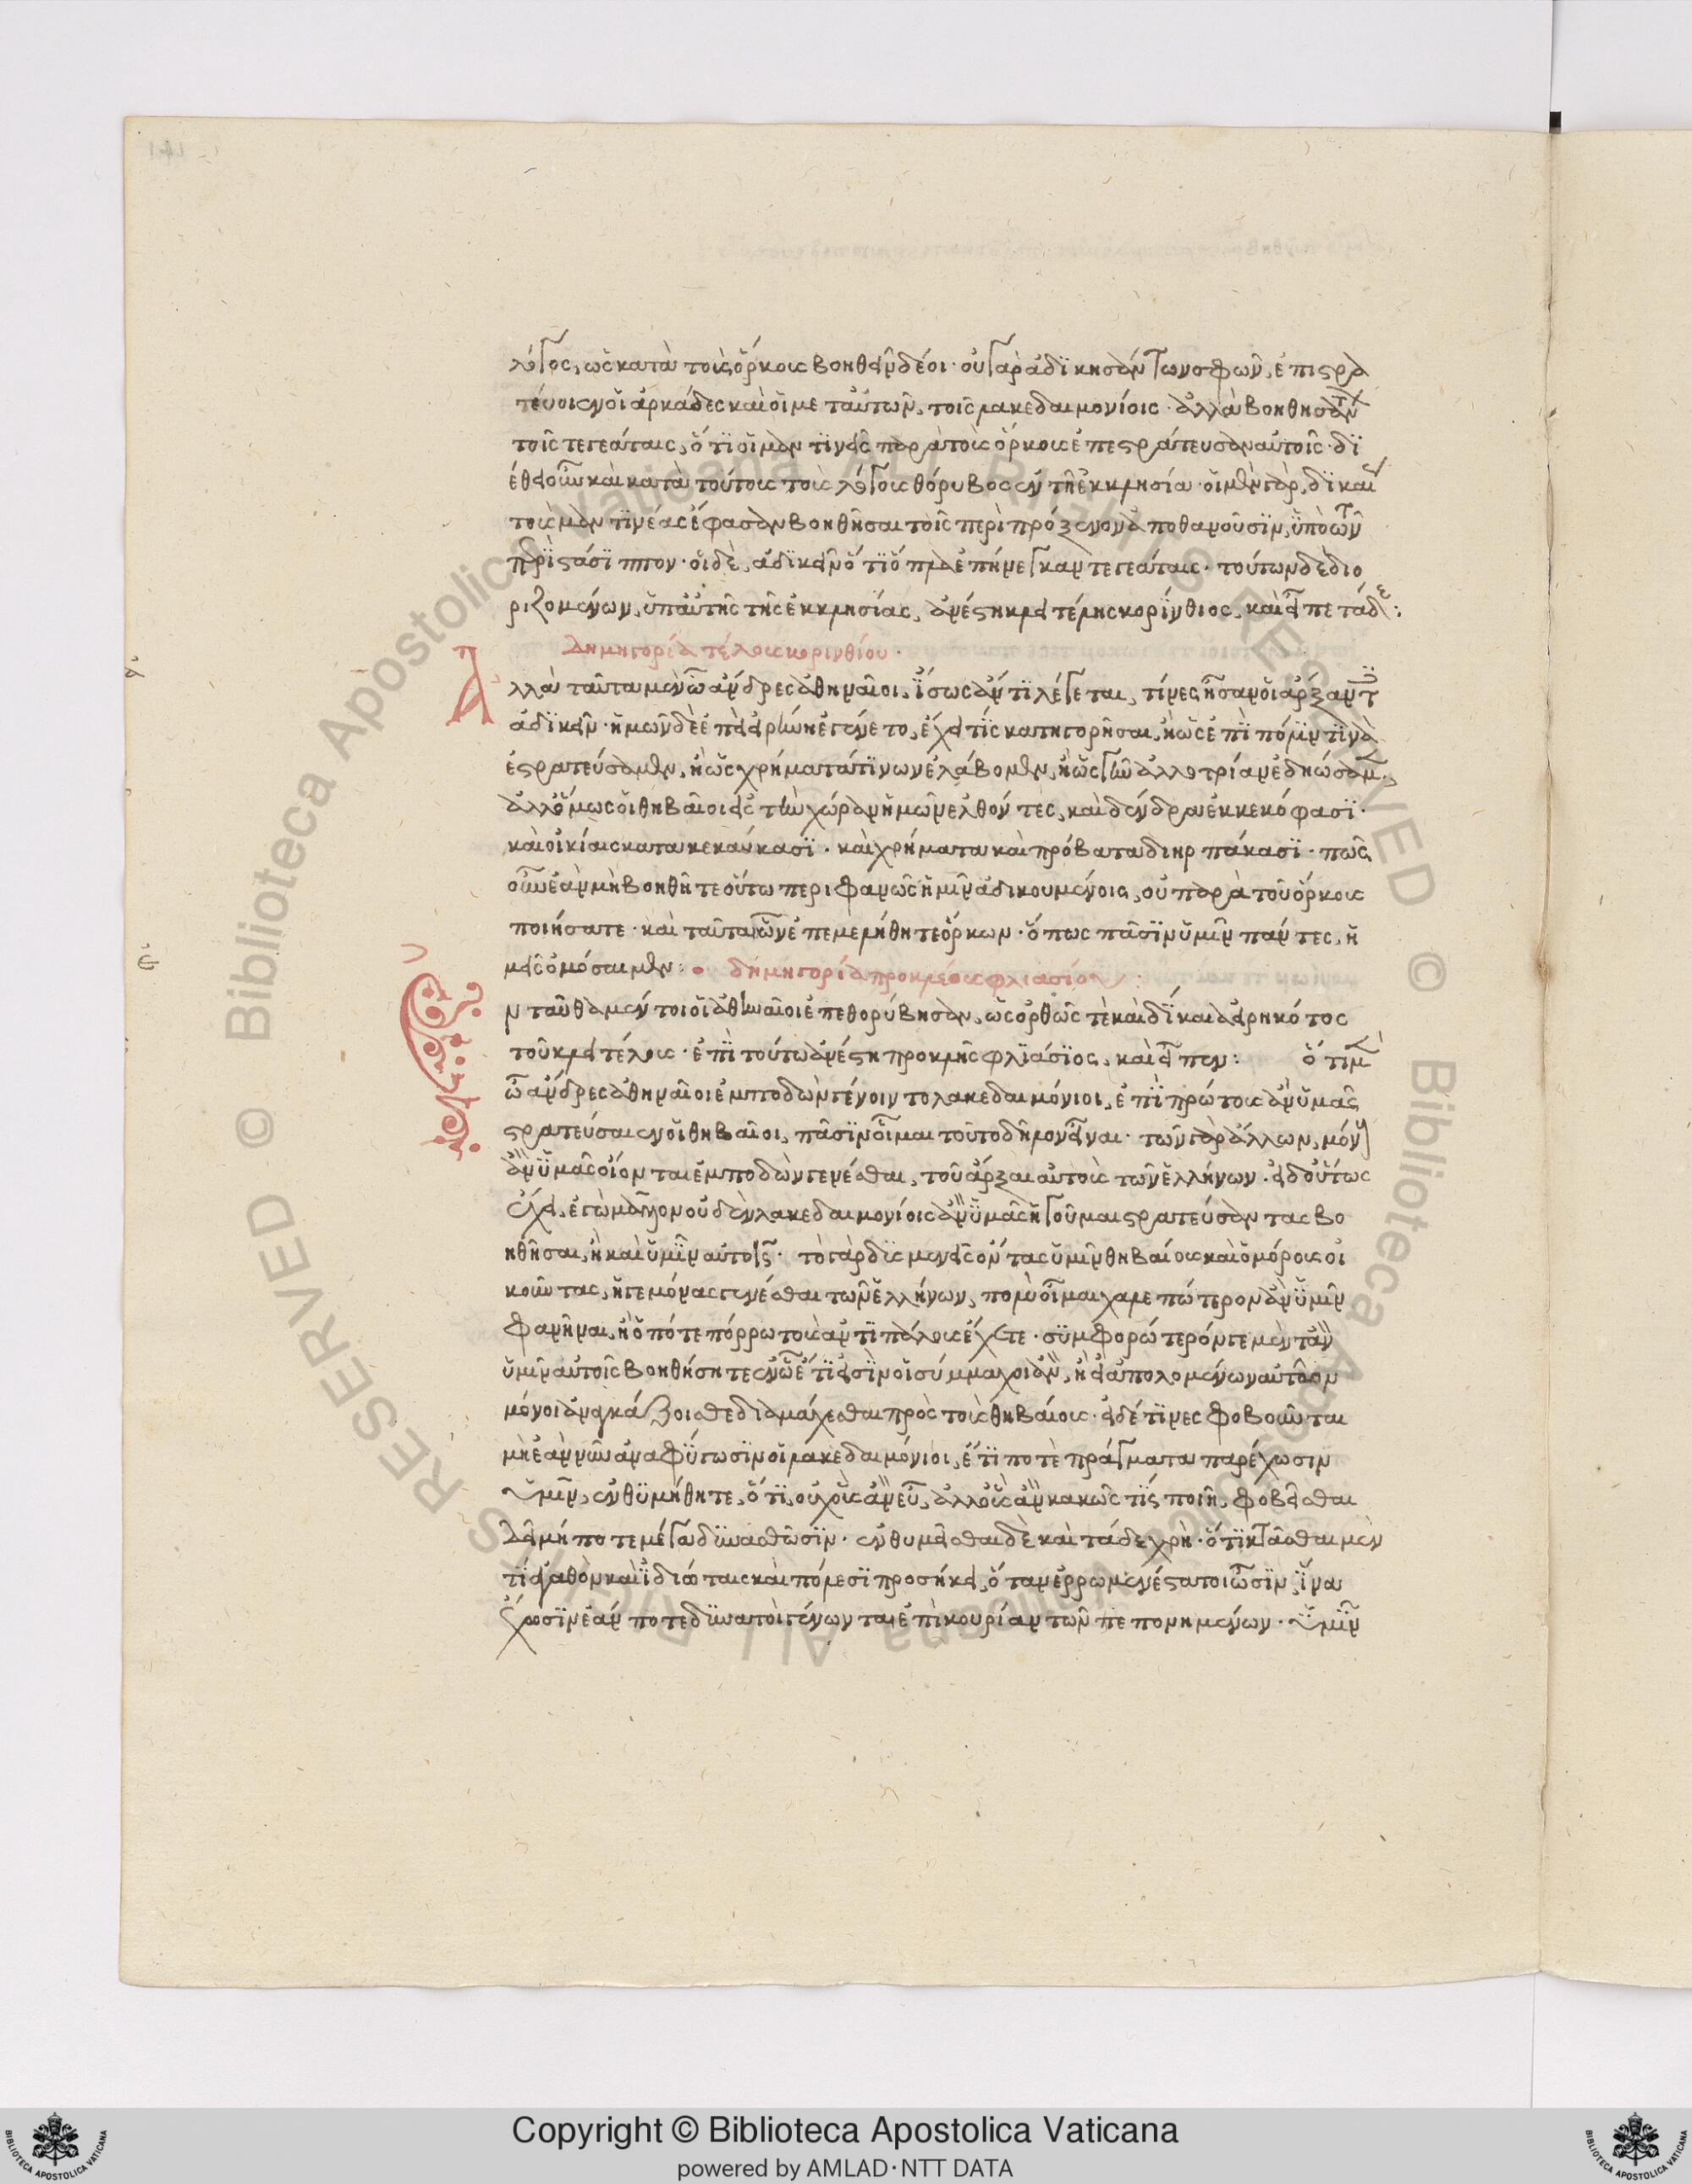 λόγος, ὡς κατὰ τοὺς ὅρκους βοηθεῖν δέοι· οὐ γὰρ ἀδικησάντων σφῶν, ἐπιστρα
τεύοιεν οἱ ἀρκάδες καὶ οἱ μετ αὐτῶν, τοῖς λακεδαιμονίοις· ἀλλὰ βοηθησάντων
τοῖς τεγεάταις, ὅτι οἱ μαντινεῖς παρὰ τοὺς ὅρκους ἐπεστράτευσαν αὐτοῖς· δι
έθει οὖν καὶ κατὰ τούτους τοὺς λόγους θόρυβος ἐν τῇ ἐκκλησίᾳ· οἱ μὲν γὰρ, δικαί
τους μαντινέας ἔφασαν βοηθῆσαι τοῖς περὶ πρόξενον ἀποθανοῦσιν, ὑπὸ τῶν
περὶ στάσιππον· οἱ δὲ, ἀδικεῖν ὅτι ὅπλα ἐπήνεγκαν τεγεάταις· τούτων δὲ διο
ριζομένων, ὑπ αὐτῆς τῆς ἐκκλησίας, ἀνέστη κλειτέλης κορίνθιος, καὶ εἶπε τάδε:
Δημηγορία τέλους κορινθίου·
Ἀλλὰ ταῦτα μὲν ὦ ἄνδρες ἀθηναῖοι, ἴσως ἀντιλέγεται, τίνες ἦσαν οἱ ἄρξαντες
ἀδικεῖν· ἡμῶν δὲ ἐπεὶ εἰρήνη ἐγένετο, ἔχει τίς κατηγορῆσαι, ἢ ὡς ἐπὶ πόλιν τινὰ
ἐστρατεύσαμεν, ἢ ὡς χρήματά τινων ἐλάβομεν, ἢ ὡς γῆν ἀλλοτρίαν ἐδηώσαμεν·
ἀλλ ὅμως οἱ θηβαῖοι εἰς τὴν χώραν ἡμῶν ἐλθόντες, καὶ δένδρα ἐκκεκόφασι·
καὶ οἰκίας κατακεκαύκασι· καὶ χρήματα καὶ πρόβατα διηρπάκασι· πῶς
οὖν ἐὰν μὴ βοηθῆτε οὕτω περιφανῶς ἡμῖν ἀδικουμένοις, οὐ παρὰ τοὺς ὅρκους
ποιήσατε· καὶ ταῦτα ὧν ἐπεμελήθητε ὅρκων· ὅπως πᾶσιν ὑμῖν πάντες, ἡ
μεῖς ὀμόσαιμεν: δημηγορία προκλέους φλιασίου:
Ἐνταῦθα μέντοι οἱ ἀθηναῖοι ἐπεθορύβησαν, ὡς ὀρθῶς τὲ καὶ δίκαια εἰρηκότος
τοῦ κλειτέλους· ἐπὶ τούτω ἀνέστη προκλῆς φλιάσιος, καὶ εἶπεν: ὅτι μὲν
ὦ ἄνδρες ἀθηναῖοι ἐμποδὼν γένοιντο λακεδαιμόνιοι, ἐπὶ πρώτους ἂν ὑμᾶς
στρατεύσαιεν οἱ θηβαῖοι, πᾶσιν οἶμαι τοῦτο δῆλον εἶναι· τῶν γὰρ ἄλλων, μόνους
ἂν ὑμᾶς οἴονται ἐμποδὼν γενέσθαι, τοῦ ἄρξαι αὐτοὺς τῶν ἑλλήνων· εἰ δ οὕτως
ἔχει, ἐγὼ μὲν μᾶλλον οὐδὲν λακεδαιμονίοις ἂν ὑμᾶς ἡγοῦμαι στρατεύσαντας βο
ηθῆσαι, ἢ καὶ ὑμῖν αὐτοῖς· τὸ γὰρ δυσμενεῖς ὄντας ὑμῖν θηβαίους καὶ ὁμόρους οἰ
κοῦντας, ἡγεμόνας γενέσθαι τῶν ἑλλήνων, πολὺ οἶμαι χαλεπώτερον ἂν ὑμῖν
φανῆναι, ἢ ὁπότε πόρρω τοὺς ἀντιπάλους ἔχετε· συμφορώτερόν γε μὲν τἂν
ὑμῖν αὐτοῖς βοηθήσητε ἐν ὧ ἔτι εἰσὶν οἱ σύμμαχοι ἂν, ἢ εἰ ἀπολομένων αὐτῶν
μόνοι ἀναγκάζοισθε διαμάχεσθαι πρὸς τοὺς θηβαίους· εἰ δέ τινες φοβοῦνται
μὴ ἐὰν νῦν ἀναφύγωσιν οἱ λακεδαιμόνιοι, ἔτι ποτὲ πράγματα παρέχωσιν
ὑμῖν, ἐνθυμήθητε, ὅτι, οὐχ οὓς ἂν εὖ, ἀλλ οὓς ἂν κακῶς τίς ποιῇ, φοβεῖσθαι
δεῖ μή ποτε μέγα δυνασθῶσιν· ἐνθυμεῖσθαι δὲ καὶ τάδε χρὴ· ὅτι κτᾶσθαι μέν
τι ἀγαθὸν καὶ ἰδιώταις καὶ πόλεσι προσήκει, ὅταν ἐρρωμενέστατοι ὦσιν, ἵνα
ἔχωσιν ἐάν ποτε δυνατοὶ γένωνται ἐπικουρίαν τῶν πεπονημένων· ὑμῖν